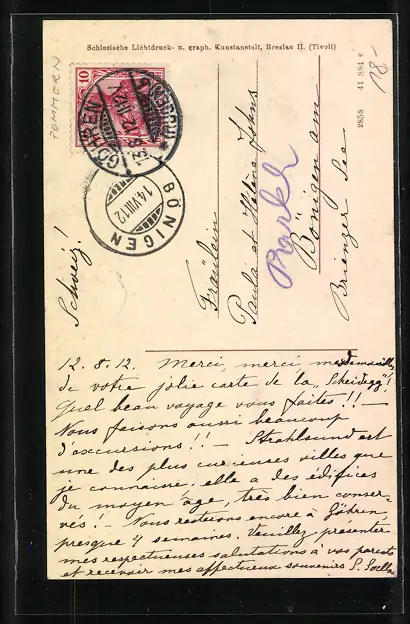 Schlesische Lichtdruck- u. graph. Kunstanstalt, Breslau II. (Tivoli)
2858 41 884 c
18-
POMMERN
10
GÖHREN
12.8.12
BÖNIGEN
14.VIII.12
Schweiz!
Fräulein
Paula et Hélène Johns
Bönigen am
Brienzer See
12.8.12. Merci, merci mesdemoiselles
de votre jolie carte de la „Scheidegg"!
Quel beau voyage vous faites!! —
Nous faisons aussi beaucoup
d'excursions!! — Strahlsund est
une des plus curieuses villes que
je connaisse, elle a des édifices
du moyen âge, très bien conser-
vés! — Nous resterons encore à Göhren,
presque 4 semaines. Veuillez présenter
mes respectueuses salutations à vos parents
et recevoir mes affectueux souvenirs S.